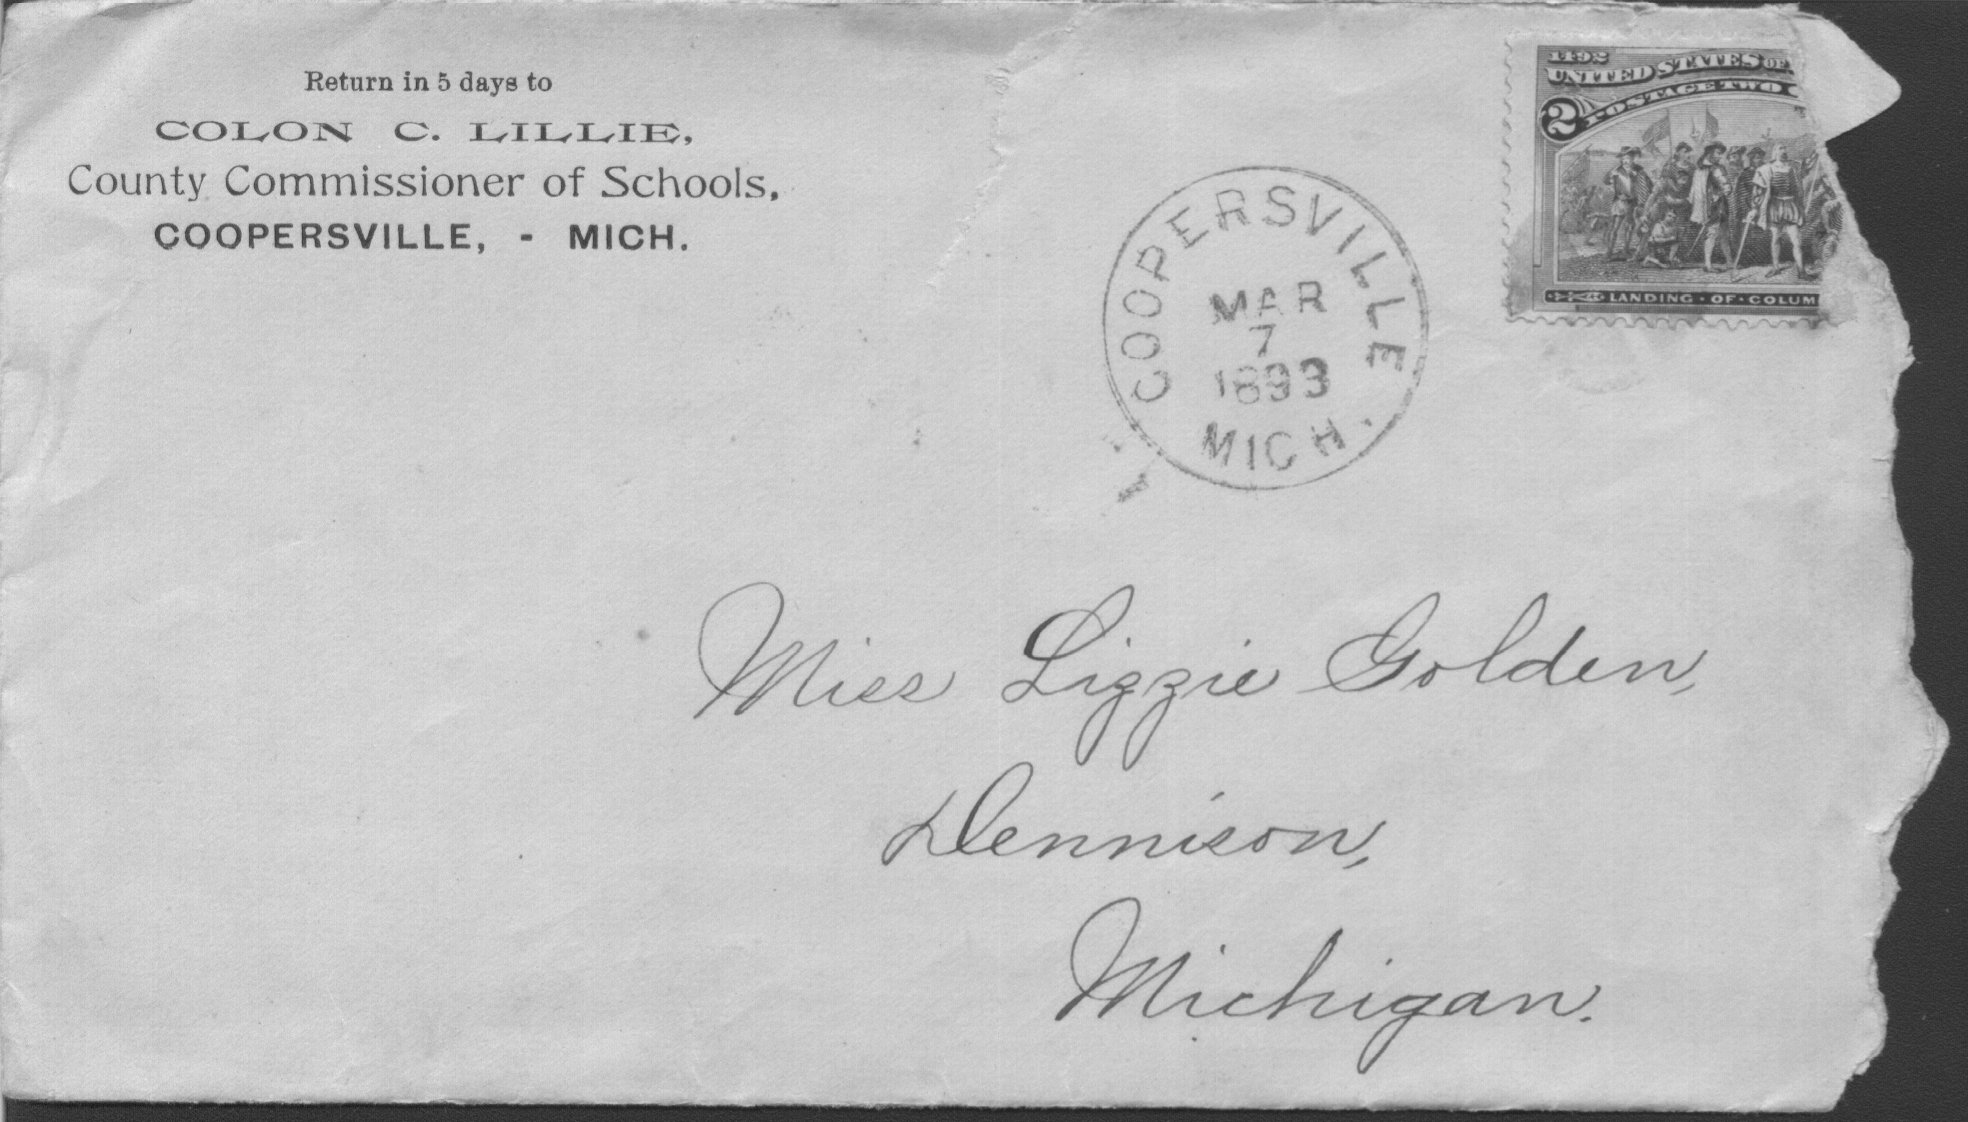 Return in 5 days to
COLON C. LILLIE,
County Commissioner of Schools,
COOPERSVILLE, - MICH.
COOPERSVILLE
MAR
7
1893
MICH.
1492
UNITED STATES OF
2 POSTAGE TWO
LANDING · OF · COLUM
Miss Lizzie Golden,
Dennison,
Michigan.